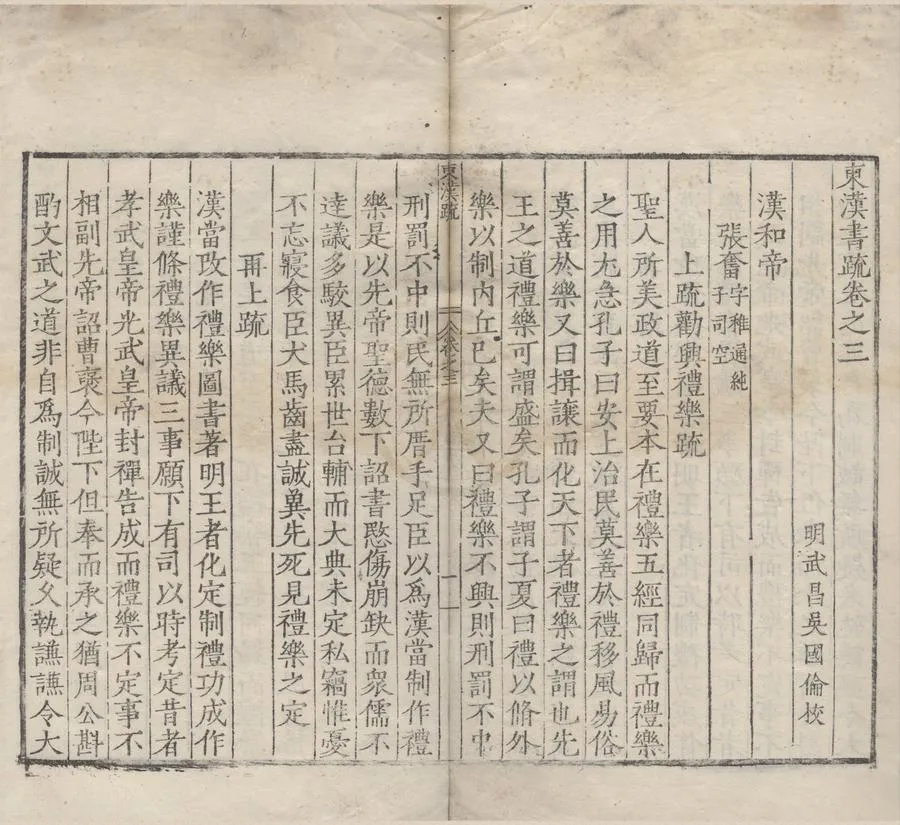 東漢書疏卷之三
明武昌吳國倫校
漢和帝
張奮字稚通純子司空
上疏勸興禮樂疏
聖人所美政道至要本在禮樂五經同歸而禮樂
之用尢急孔子曰安上治民莫善於禮移風易俗
莫善於樂又曰揖讓而化天下者禮樂之謂也先
王之道禮樂可謂盛矣孔子謂子夏曰禮以脩外
樂以制内丘已矣夫又曰禮樂不興則刑罰不中
東漢疏
卷之三
一
刑罰不中則民無所厝手足臣以爲漢當制作禮
樂是以先帝聖德數下詔書愍傷崩缺而衆儒不
達議多駮異臣累世台輔而大典未定私竊惟憂
不忘寢食臣犬馬齒盡誠冀先死見禮樂之定
再上疏
漢當改作禮樂圖書著明王者化定制禮功成作
樂謹條禮樂異議三事願下有司以時考定昔者
孝武皇帝光武皇帝封禪告成而禮樂不定事不
相副先帝詔曹褒今陛下但奉而承之猶周公斟
酌文武之道非自爲制誠無所疑乆執謙謙令大